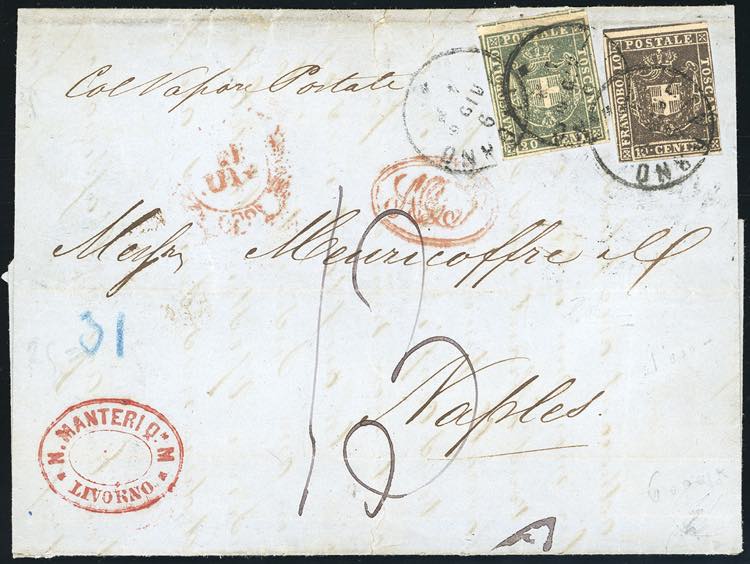 FRANCOBOLLO POSTALE TOSCANO
20 CENT
FRANCOBOLLO POSTALE TOSCANO
10 CENT
Col Vapore Postale
GIU
9
Messrs Meuricoffre & C
Naples.
31
N. MANTERI Q.m M
LIVORNO.